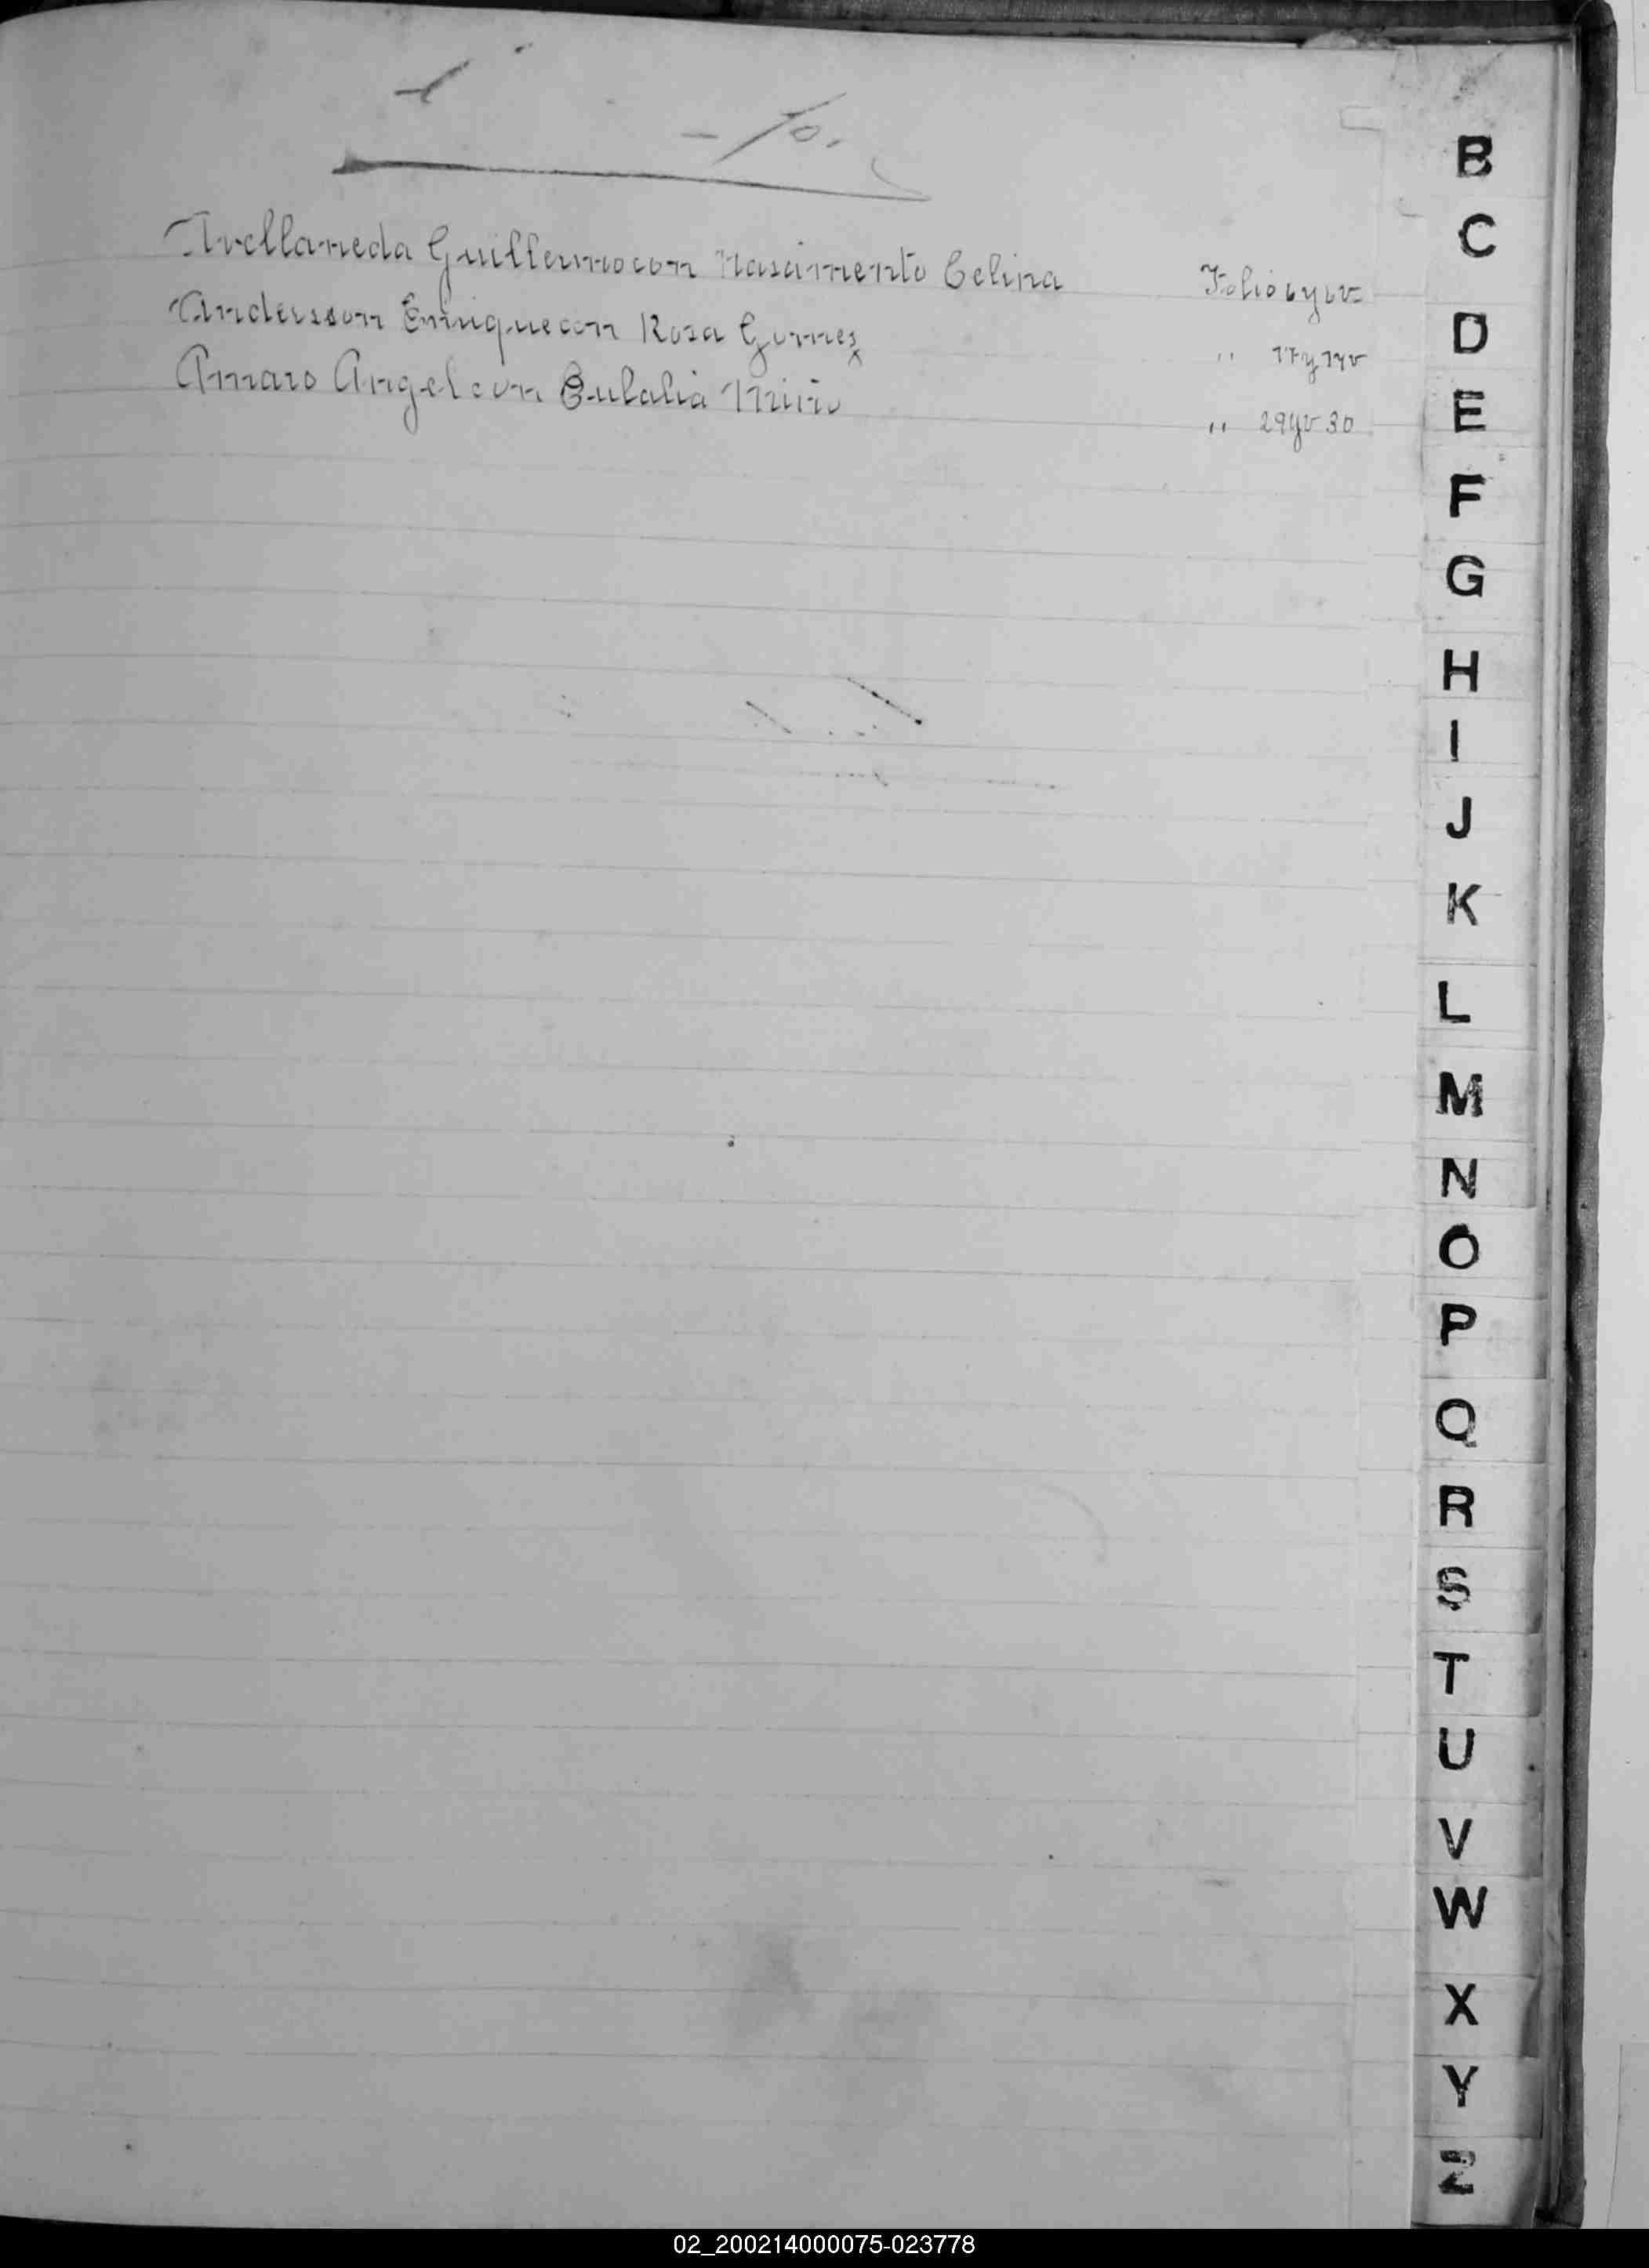 Avellaneda Guillermo con Nasimento Celina Folio 6 y 6 v
Andersson Enrique con Rosa Gomez " 17 y 17 v
Amaro Angel con Eulalia " 29 y v 30
B
C
D
E
F
G
H
I
J
K
L
M
N
O
P
Q
R
S
T
U
V
W
X
Y
Z
02_200214000075-023778